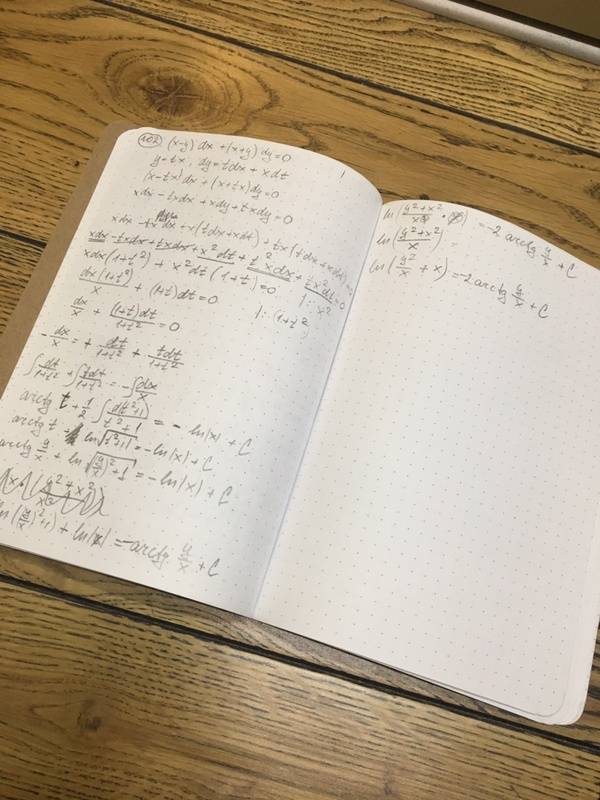 102 (x-y) dx + (x+y) dy = 0
y = tx, dy = tdx + xdt
(x-tx) dx + (x+tx) dy = 0
xdx - txdx + xdy + txdy = 0
xdx - txdx + x(tdx+xdt) + tx(tdx+xdt) = 0
xdx - txdx + txdx + x²dt + t²xdx + tx²dt = 0
xdx(1+t²) + x²dt(1+t) = 0 |: x²
dx(1+t²)/x + (1+t)dt = 0 |: (1+t²)
dx/x + (1+t)dt/1+t² = 0
-dx/x = + dt/1+t² + tdt/1+t²
∫ dt/1+t² + ∫ tdt/1+t² = -∫ dx/x
arctg t + 1/2 ∫ d(t²+1)/t²+1 = - ln|x| + C
arctg t + ln √(t²+1) = -ln|x| + C
arctg y/x + ln √((y/x)²+1) = -ln|x| + C
ln((y/x)²+1) + ln|x| = -arctg y/x + C
ln(y²+x²/x = -2 arctg y/x + C
ln(y²+x²/x) =
ln(y²/x + x) = -2 arctg y/x + C